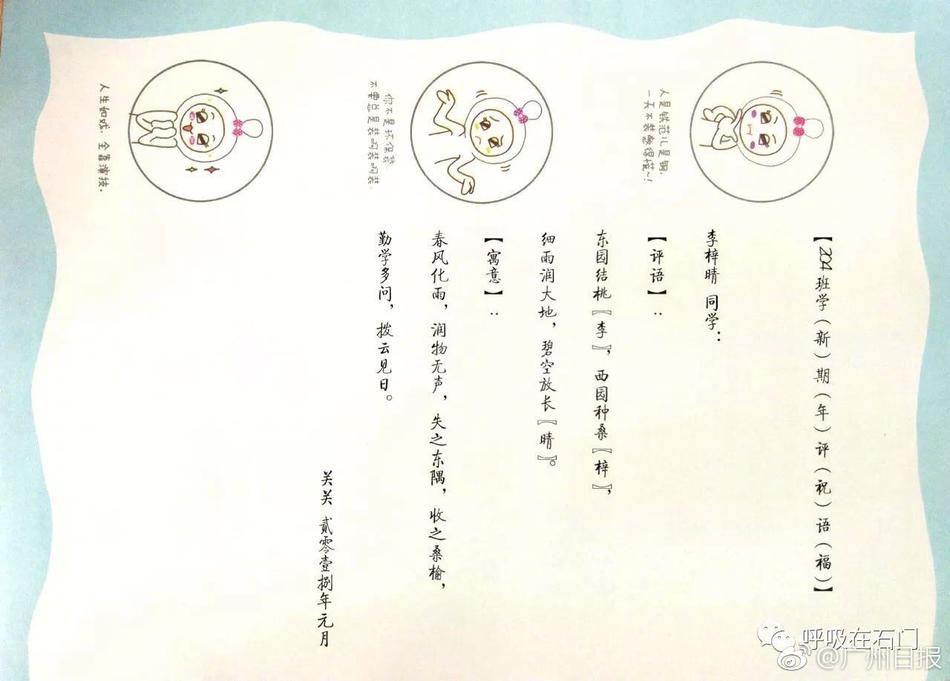 人是铁范儿是钢,
一天不装憋得慌~!
你不是环保袋
不要总是装啊装啊装
人生如戏,全靠演技.
【204班学(新)期(年)评(祝)语(福)】
李梓晴 同学:
【评语】:
东园结桃〖李〗,西园种桑〖梓〗,
细雨润大地,碧空放长〖晴〗。
【寓意】:
春风化雨,润物无声,失之东隅,收之桑榆,
勤学多问,拨云见日。
关关 贰零壹捌年元月
呼吸在石门
@广州日报